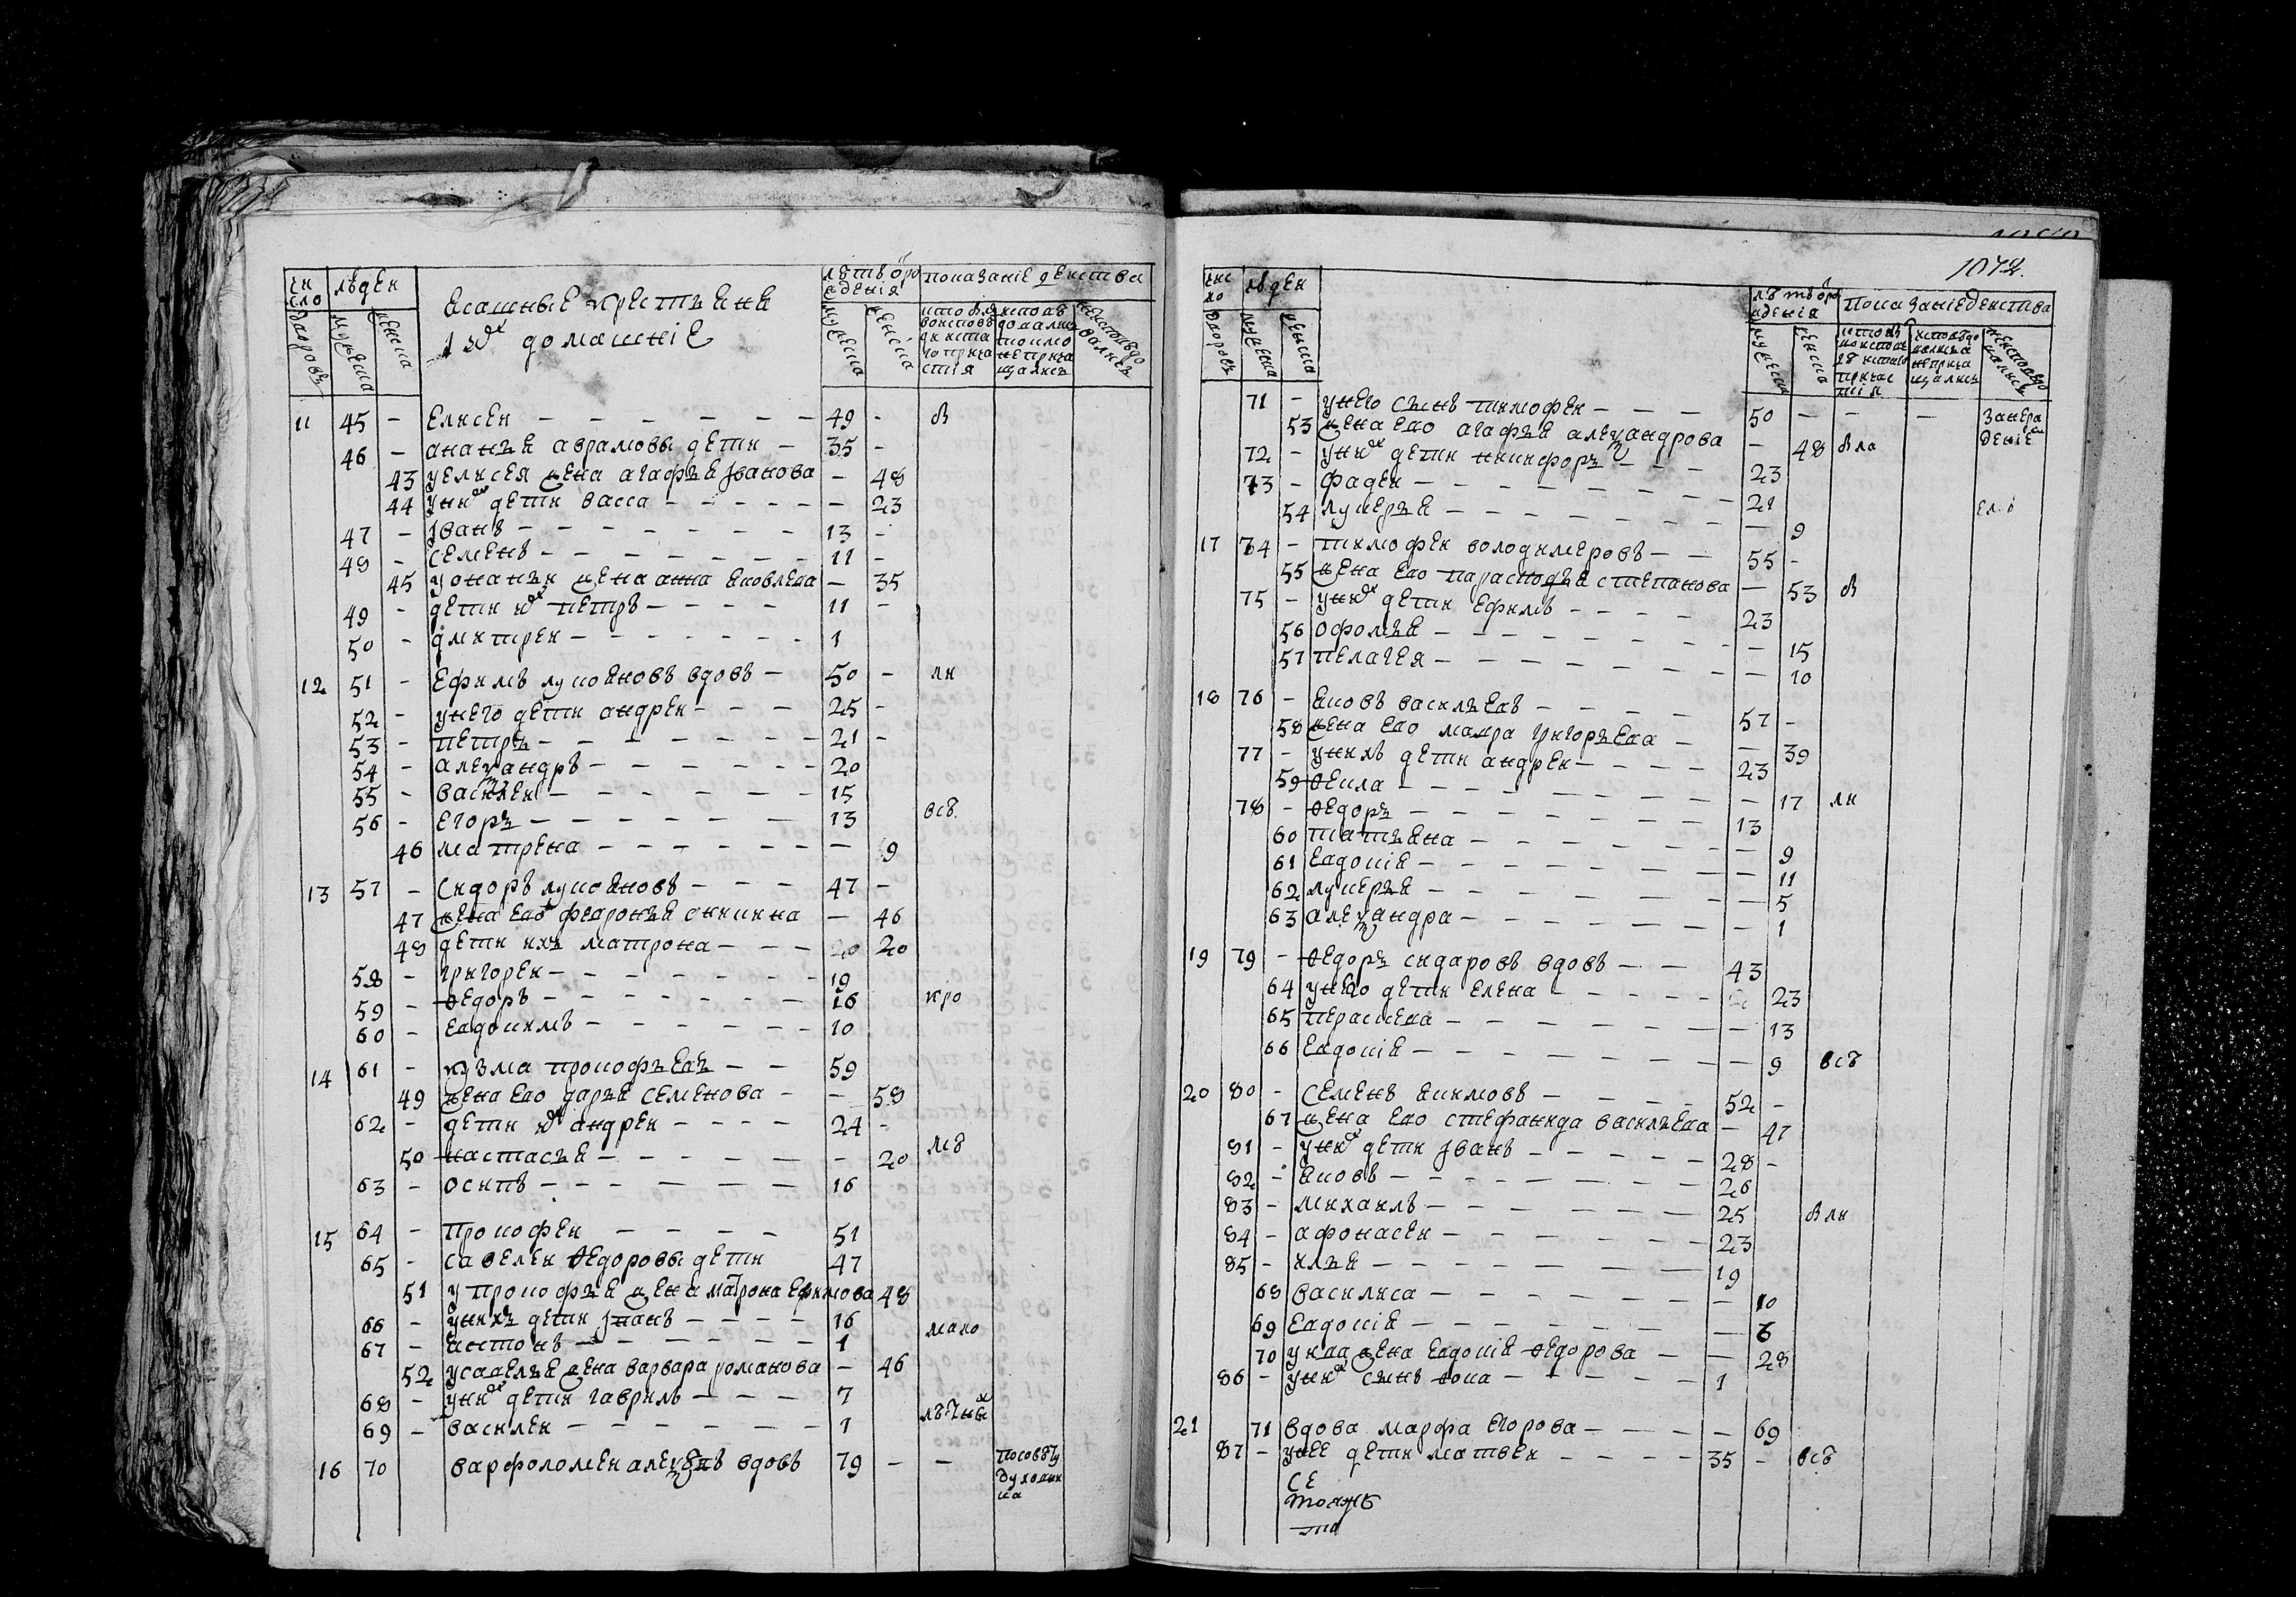 чи
сло
дворовъ
людеи
мужеска
женска
ясашные крестьяне
и их домашніе
лѣтъ от рож
денія
мужеска
женска
показаніе деиства
11 45 - елисеи - 49 - в
46 - ананья аврамовы дети - 35 -
43 у елисея жена агафья Iванова - 48
44 у них дети васса - - 23
47 - Iванъ - 13 -
48 - семенъ - 11 -
45 у онаньи жена анна яковлева - 35
49 - дети их петръ - 11 -
50 - дмитреи - 1
12 51 - ефимъ лукояновъ вдовъ - 50 - ли
52 - у него дети андреи - 25 -
53 - петръ - 21 -
54 - алеѯандръ - 20
55 - василеи - 15
56 - егоръ - 13 всѣ
46 матрена - - 9
13 57 - сидоръ лукояновъ - 47 -
47 жена ево феѵронья оникина - 46
48 дети ихъ матрона - 20 20
58 - григореи - 19
59 - ѳедоръ - 16 кро
60 - евдокимъ - 10
14 61 - кузма прокофьевъ - 59
49 жена ево дарья семенова - - 58
62 - дети их андреи - 24 -
50 настасья - - 20 мѣ
63 - осипъ - 16
15 64 - прокофеи - 51
65 - савелеи ѳедоровы дети 47
51 у прокофья жена матрона ефимова 48
66 - у нихъ дети Iванъ - 16 мало
67 - - 1
52 у савелья жена варвара романова - 46
68 - у них дети гаврилъ - 7
69 - василеи - 1 лѣтных
16 70 варфоломеи алеѯѣевъ вдовъ 79 - - по совѣту
духовни
ка
1072.
чис
ло
дворовъ
людеи
мужеска
женска
лѣтъ от ро
жденія
мужеска
женска
показаніе деиства
71 - у него сынъ тимофеи - 50 - - - за нера
53 жена ево агафья алеѯандрова - 48 вла дение
72 - у них дети никифоръ - 23
73 - фадеи - 21
54 лукерья - - 9
17 74 - тимофеи володимеровъ - 55 -
55 жена ево парасковья степанова - 53 в
75 - у них дети ефимъ - 23
56 офомья - - 15
57 пелагея - - 10
18 76 - яковъ васильевъ - 57 -
58 жена ево мавра григорьева - - 39
77 - у нихъ дети андреи - 23
59 ѳекла - - 17 ли
78 - ѳедоръ - 13
60 татьяна - - 9
61 евдокія - - 11
62 лукерья - - 5
63 алеѯандра - - 1
19 79 - ѳедоръ сидаровъ вдовъ - 43
64 у него дети елена - 23
65 - 13
66 евдокія - - 9 всѣ
20 80 - семенъ якимовъ - 52 -
67 жена ево стефанида васильева - 47
81 - у них дети Iванъ - 28 -
82 - яковъ - 26
83 - михаилъ - 25 вли
84 - афонасеи - 23
85 - илья - 19
68 василиса - - 10
69 евдокія - - 6
70 у жена евдокія ѳедорова - - 28
86 - у них сынъ - 1
21 71 вдова марфа егорова - - 69
87 - у нее дети матвеи - 35 - всѣ